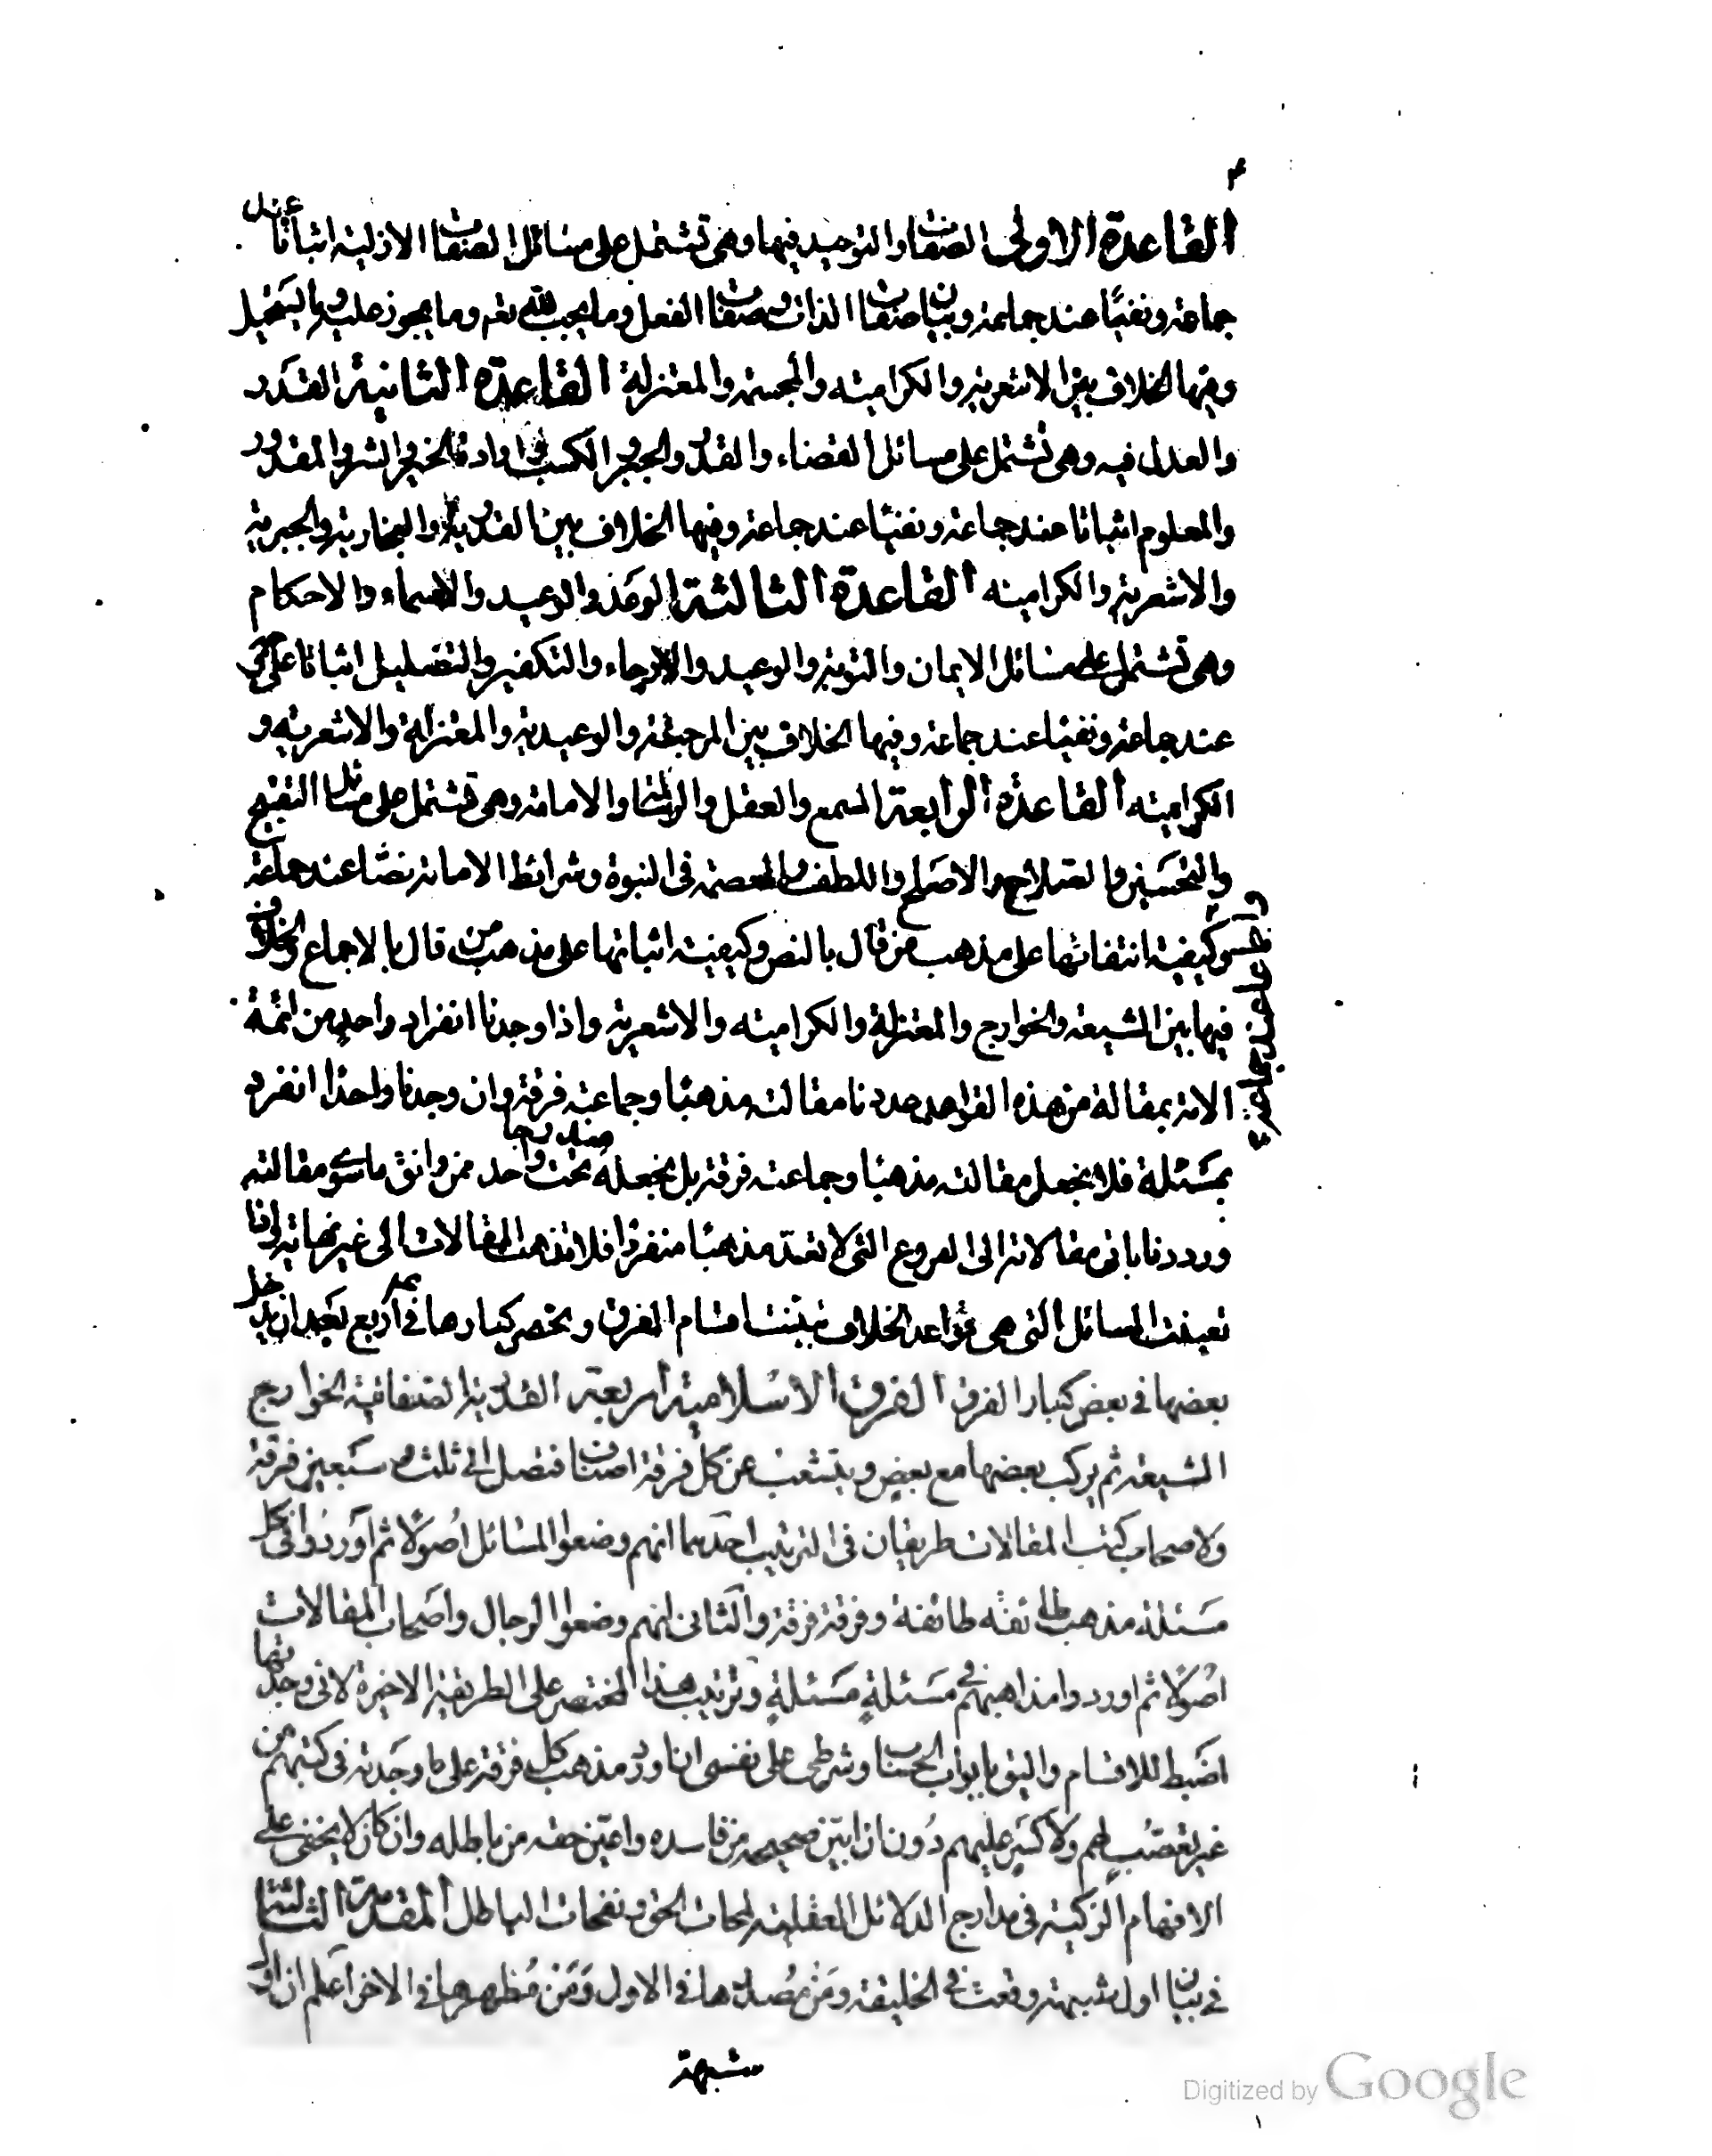 ٤
القاعدة الاولى الصفات والتوحيد فيها وهى تشتمل على مسائل الصفات الازلية اثباتا عند
جماعة ونفيًا عند جماعة وبيان صفات الذات وصفات الفعل وما يجب لله تعم وما يجوز عليه وما يستحيل
وفيها الخلاف بين الاشعرية والكرامية والمجسمة والمعتزلة القاعدة الثانية القدر
والعدل فيه وهى تشتمل على مسائل القضاء والقدر والجبر والكسب فى ارادة الخير والشر والمقدور
والمعلوم اثباتا عند جماعة ونفيا عند جماعة وفيها الخلاف بين القدرية والنجارية والجبرية
والاشعرية والكرامية القاعدة الثالثة الوعد والوعيد والاسماء والاحكام
وهى تشتمل على مسائل الايمان والتوبة والوعيد والارجاء والتكفير والتضليل اثباتا على
عند جماعة ونفيا عند جماعة وفيها الخلاف بين المرجئة والوعيدية والمعتزلة والاشعرية و
الكرامية القاعدة الرابعة السمع والعقل والرسالة والامامة وهى تشتمل على مسائل التقبيح
والتحسين والصلاح والاصلح واللطف والعصمة فى النبوة وشرائط الامامة نصّا عند جماعة
وكيفية انتفائها على مذهب من قال بالنص وكيفية اثباتها على مذهب من قال بالاجماع والخلاف
فيها بين الشيعة والخوارج والمعتزلة والكرامية والاشعرية واذا وجدنا انفراد واحد من ائمة
الامة بمقالة من هذه القواعد عددنا مقالته مذهبا وجماعته فرقة وان وجدنا واحدًا انفرد
بمسئلة فلا نجعل مقالته مذهبا وجماعته فرقة بل نجعله مندرجا تحت واحد ممن وافق ما سوى مقالته
ورددنا باقى مقالاته الى الفروع التى لا تعدّ مذهبا منفردًا فلا تذهب المقالات الى غير نهاية واذا
تعينت المسائل التى هى قواعد الخلاف تبينت اقسام الفرق وتنحصر كبارها فى اربع بعد ان يدخل
بعضها فى بعض كبار الفرق الفرق الاسلامية اربعة القدرية الصفاتية الخوارج
الشيعة ثم يركب بعضها مع بعض ويتشعب عن كل فرقة اصناف فتصل الى ثلث و سبعين فرقة
ولاصحاب كتب المقالات طريقان فى الترتيب احدهما انهم وضعوا المسائل اصولًا ثم اوردوا فى كل
مسئلة مذهب طائفة طائفة وفرقة فرقة والثانى انهم وضعوا الرجال واصحاب المقالات
اصولًا ثم اوردوا مذاهبهم فى مسئلةٍ مسئلةٍ وترتيب هذا المختصر على الطريقة الاخيرة لانى وجدتها
اضبط للاقسام واليق بابواب الحساب وشرطى على نفسى ان اورد مذهب كل فرقة على ما وجدته فى كتبهم من
غير تعصّب لهم ولا كسر عليهم دون ان ابيّن صحيحه من فاسده واعيّن حقه من باطله وان كان لا يخفى على
الافهام الزكية فى مدارج الدلائل العقلية لمحات الحق ونفحات الباطل المقدمة الثالثة
فى بيان اول شبهة وقعت فى الخليقة ومن مصدرها فى الاول ومن مظهرها فى الاخر اعلم ان اول
شبهة
Digitized by Google